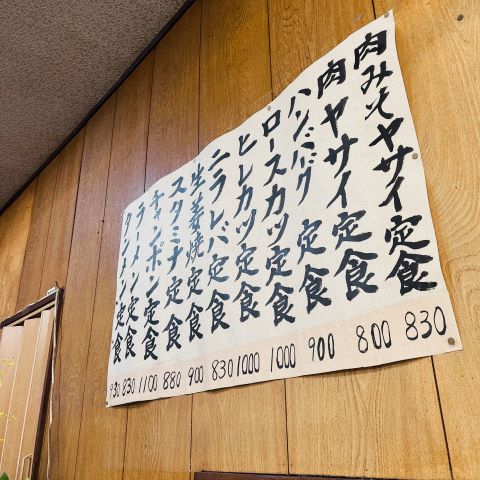 肉みそヤサイ定食 830
肉ヤサイ定食 800
ハンバーグ定食 900
ロースカツ定食 1000
ヒレカツ定食 1000
ニラレバ定食 830
生姜焼定食 900
スタミナ定食 880
チャンポン定食 1100
ラーメン定食 830
タンメン定食 930